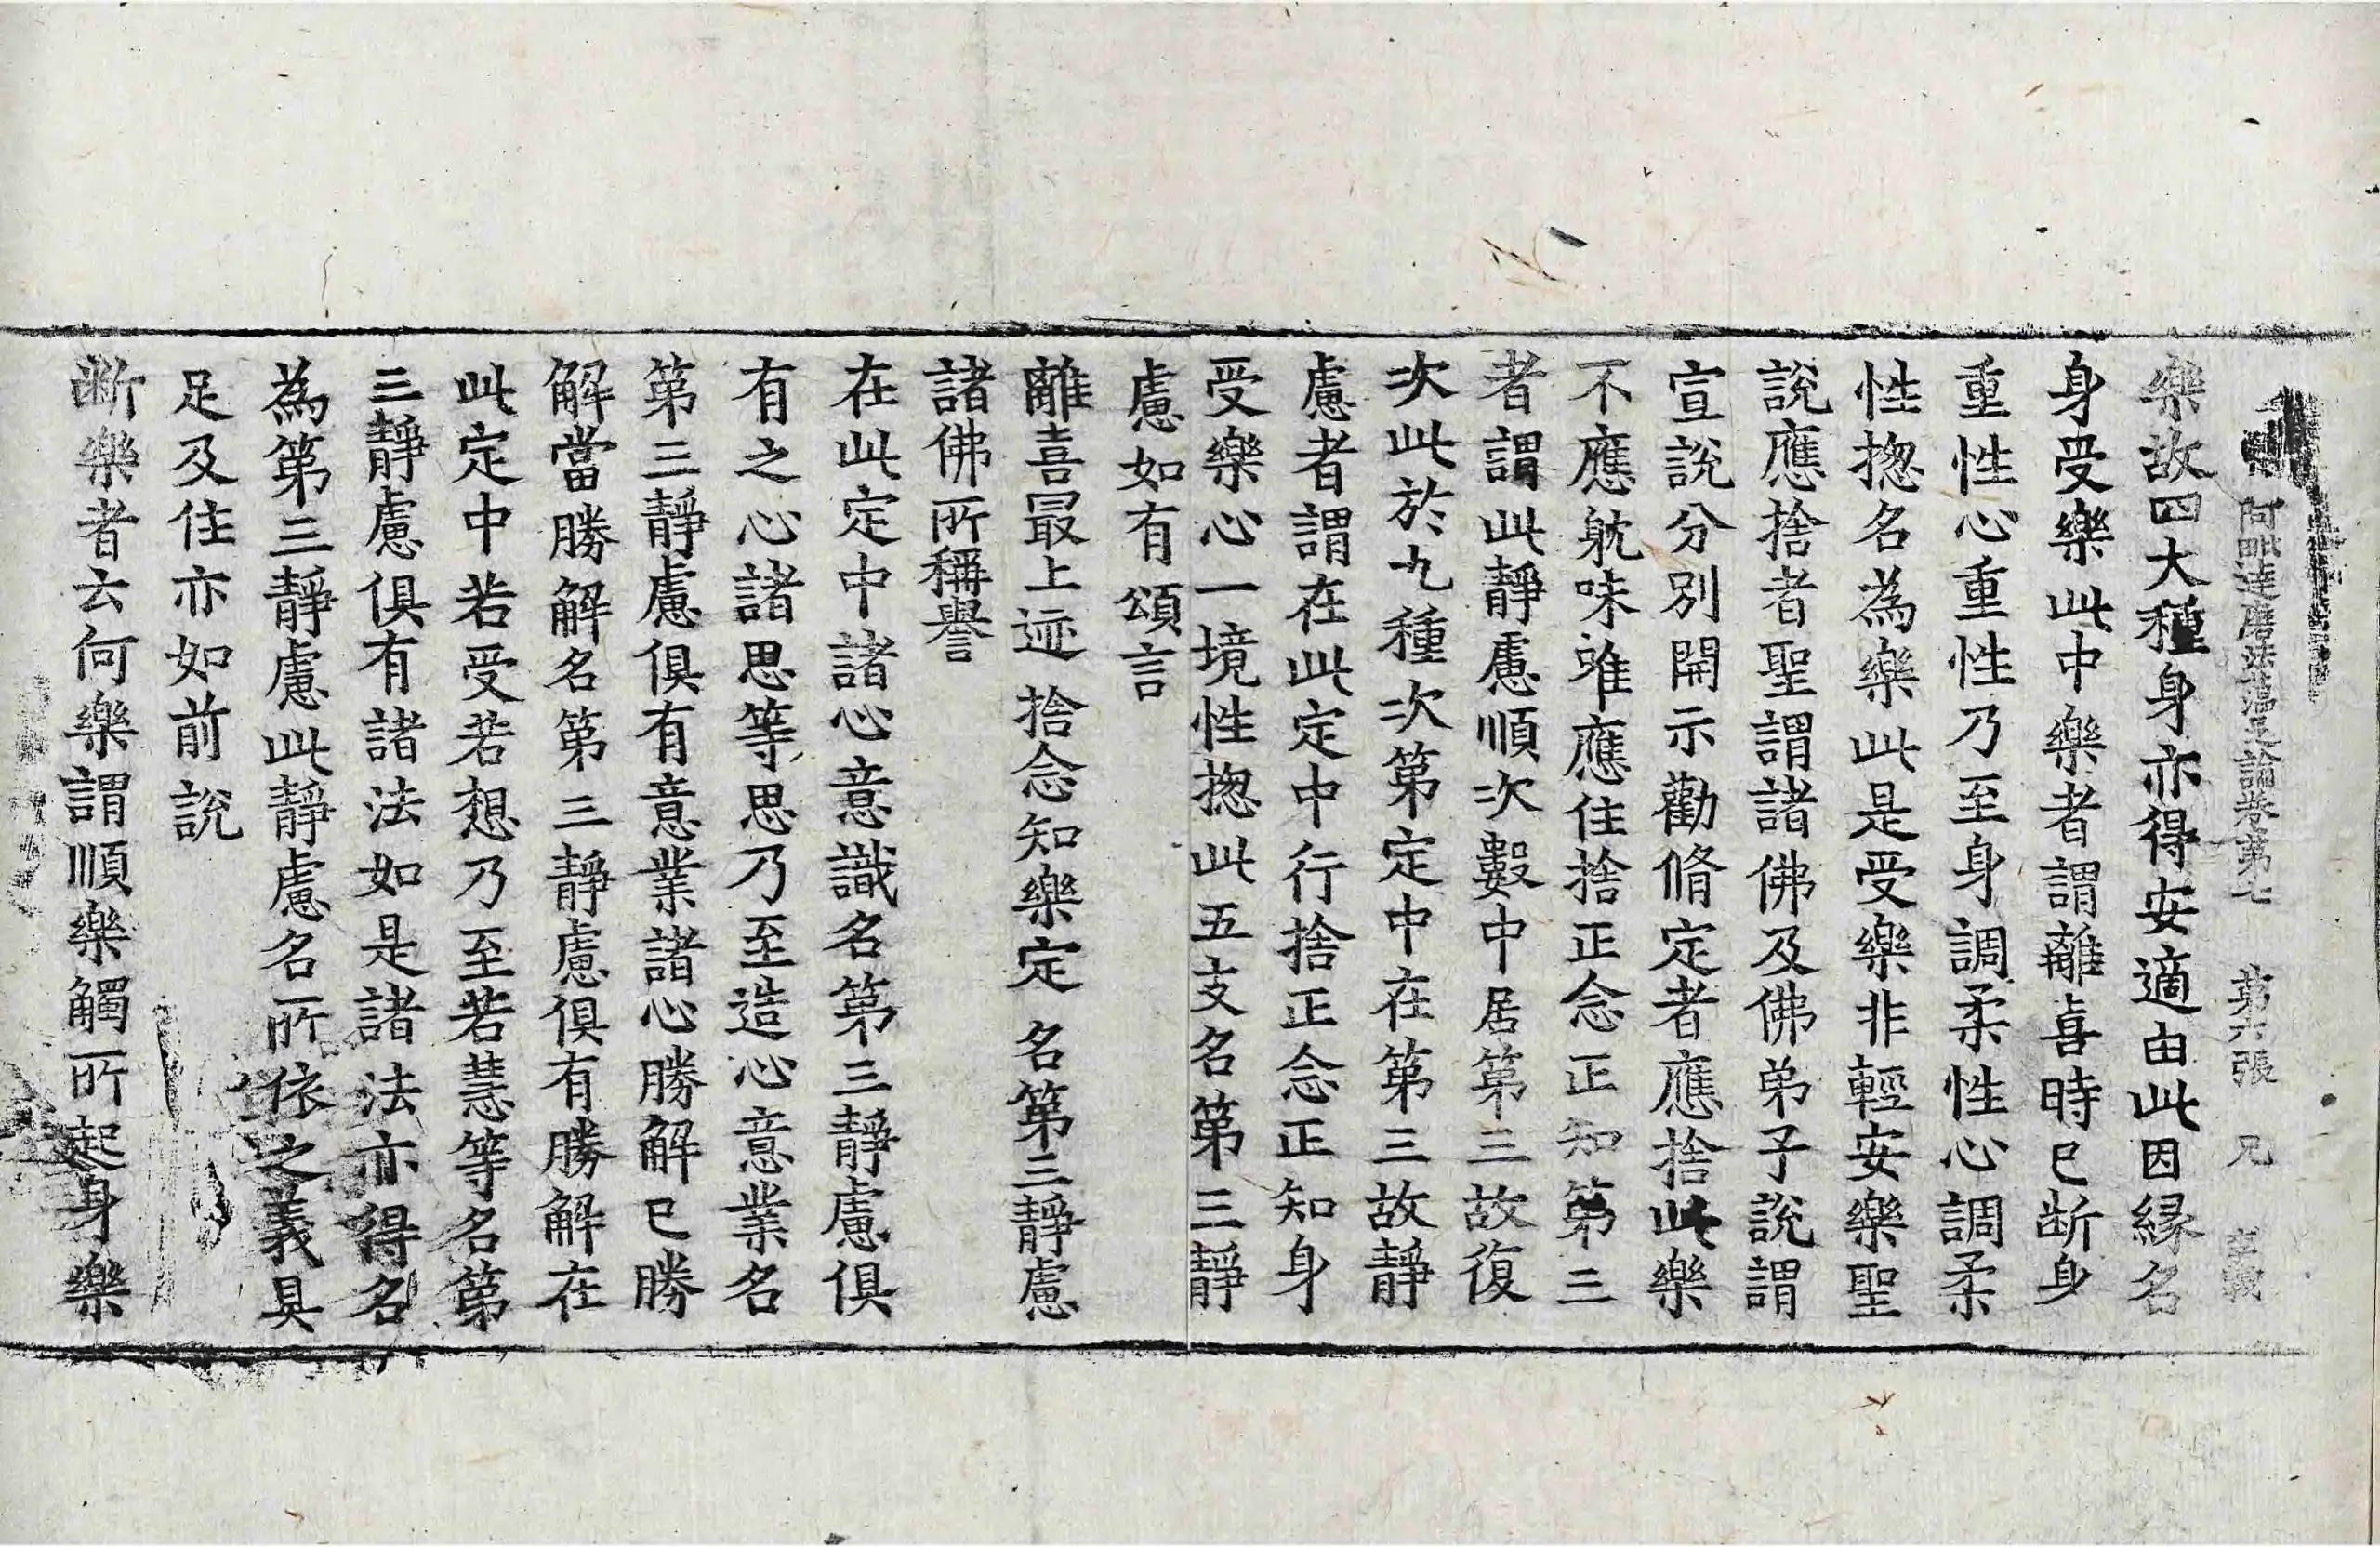 阿毗達磨法蘊足論卷第七 第六張 兄
樂故四大種身亦得安適由此因緣名
身受樂此中樂者謂離喜時已断身
重性心重性乃至身調柔性心調柔
性揔名為樂此是受樂非輕安樂聖
說應捨者聖謂諸佛及佛弟子說謂
宣說分別開示勸脩定者應捨此樂
不應躭味唯應住捨正念正知第三
者謂此靜慮順次數中居第三故復
次此於九種次第定中在第三故靜
慮者謂在此定中行捨正念正知身
受樂心一境性揔此五支名第三靜
慮如有頌言
離喜最上迹 捨念知樂定 名第三靜慮
諸佛所稱譽
在此定中諸心意識名第三靜慮俱
有之心諸思等思乃至造心意業名
第三靜慮俱有意業諸心勝解已勝
解當勝解名第三靜慮俱有勝解在
此定中若受若想乃至若慧等名第
三靜慮俱有諸法如是諸法亦得名
為第三靜慮此靜慮名所依之義具
足及住亦如前說
断樂者云何樂謂順樂觸所起身樂